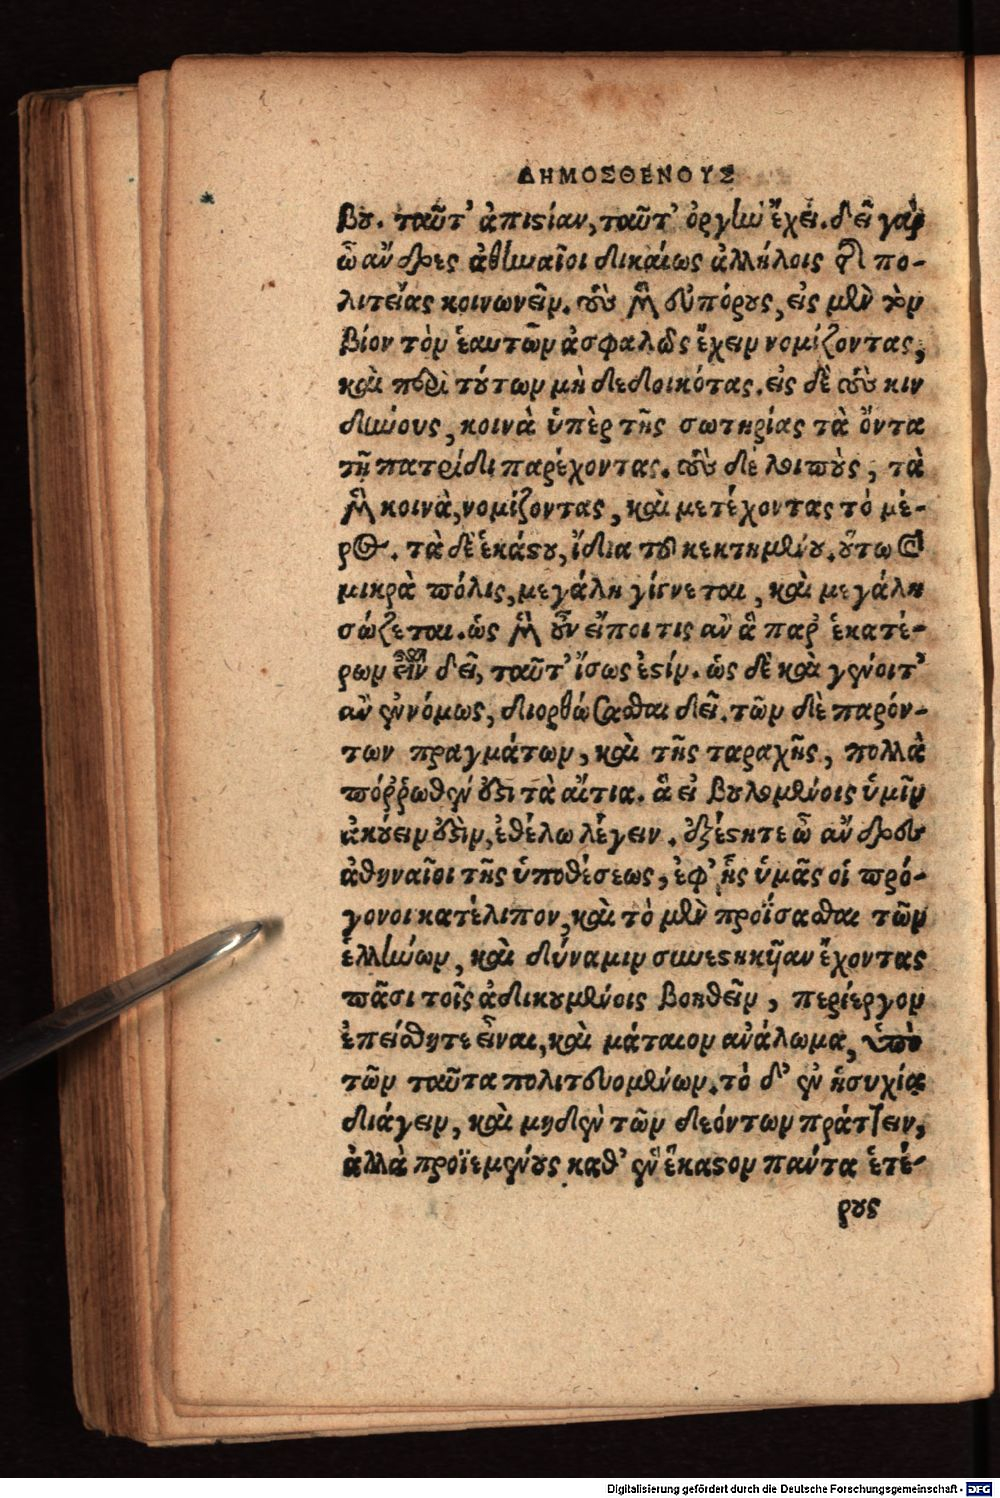 ΔΗΜΟΣΘΕΝΟΥΣ
βου. ταῦτ' ἀπιστίαν, ταῦτ' ὀργὴν ἔχει. δεῖ γὰρ
ὦ ἄνδρες ἀθηναῖοι δικαίως ἀλλήλοις τῆς πο-
λιτείας κοινωνεῖν. τοὺς μὲν εὐπόρους, εἰς μὲν τὸν
βίον τὸν ἑαυτῶν ἀσφαλῶς ἔχειν νομίζοντας,
καὶ περὶ τούτων μὴ δεδοικότας. εἰς δὲ τοὺς κιν
δύνους, κοινὰ ὑπὲρ τῆς σωτηρίας τὰ ὄντα
τῇ πατρίδι παρέχοντας. τοὺς δὲ λοιποὺς, τὰ
μὲν κοινὰ, νομίζοντας, καὶ μετέχοντας τὸ μέ-
ρος. τὰ δὲ ἑκάστου, ἴδια τοῦ κεκτημένου. οὕτω καὶ
μικρὰ πόλις, μεγάλη γίγνεται, καὶ μεγάλη
σώζεται. ὡς μὲν οὖν εἴποι τις ἂν ἃ παρ' ἑκατέ-
ρων εἶναι δεῖ, ταῦτ' ἴσως ἐστίν. ὡς δὲ καὶ γένοιτ'
ἂν ἐννόμως, διορθώσασθαι δεῖ. τῶν δὲ παρόν-
των πραγμάτων, καὶ τῆς ταραχῆς, πολλὰ
πόῤῥωθέν ἐστι τὰ αἴτια. ἃ εἰ βουλομένοις ὑμῖν
ἀκούειν ἐστὶν, ἐθέλω λέγειν. ἐξέστητε ὦ ἄνδρες
ἀθηναῖοι τῆς ὑποθέσεως, ἐφ' ἧς ὑμᾶς οἱ πρό-
γονοι κατέλιπον, καὶ τὸ μὲν προΐσασθαι τῶν
ἑλλήνων, καὶ δύναμιν συνεστηκῆαν ἔχοντας
πᾶσι τοῖς ἀδικουμένοις βοηθεῖν, περίεργον
ἐπείσθητε εἶναι, καὶ μάταιον ἀνάλωμα, ὑπὸ
τῶν ταῦτα πολιτευομένων. τὸ δ' ἐν ἡσυχίᾳ
διάγειν, καὶ μηδὲν τῶν δεόντων πράττειν,
ἀλλὰ προϊεμένους καθ' ἓν ἕκαστον πάντα ἑτέ-
ρους
Digitalisierung gefördert durch die Deutsche Forschungsgemeinschaft - DFG